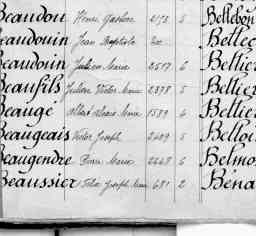 Beaudon Henri Gaston 2172 5 Bellebon
Beaudouin Jean Baptiste Bellec
Beaudouin Julien Marie 2517 6 Bellier
Beaufils Julien Victor Marie 2378 5 Bellier
Beaugé Albert Marie 1589 4 Bellier
Beaugeais Victor Joseph 2409 5 Belloi
Beaugendre Pierre Marie 2248 6 Belmo
Beaussier Joseph Marie 681 2 Béna